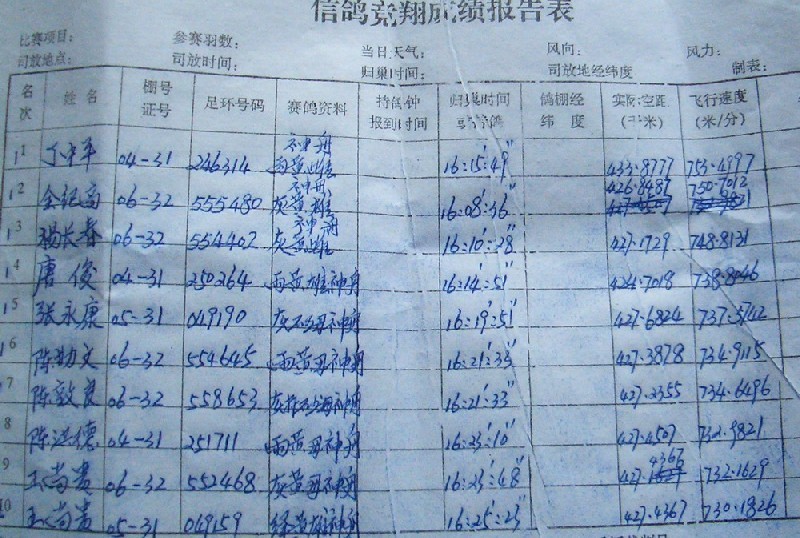 信鸽竞翔成绩报告表
比赛项目: 参赛羽数: 当日天气: 风向: 风力:
司放地点: 司放时间: 归巢时间: 司放地经纬度 制表:
名次 姓名 棚号证号 足环号码 赛鸽资料 持鸽钟报到时间 归巢时间 鸽棚经纬度 实际空距 飞行速度(米/分)
1 丁中平 04-31 246314 雨黄雄神舟 16:15′:49″ 433.8777 753.4997
2 余纪高 06-32 555480 灰黄雄神舟 16:08′:36″ 426.8487 750.7012
3 杨长春 06-32 554402 灰雄神舟 16:10′:28″ 427.1729 748.8131
4 唐俊 04-31 250264 雨黄雄神舟 16:14′:51″ 424.7018 738.8046
5 张永康 05-31 049190 16:19′:51″ 427.6824 737.5742
6 陈勤文 06-32 554645 雨黄母神舟 16:21′:33″ 427.3878 734.9115
7 陈敦良 06-32 558653 16:21′:33″ 427.2355 734.6496
8 陈洪德 04-31 251711 雨黄母神舟 16:23′:10″ 427.4507 732.9821
9 王尚贵 06-32 552468 灰黄母神舟 16:23′:48″ 427.4367 732.1629
10 王尚贵 05-31 049159 绛黄雄神舟 16:25′:23″ 427.4367 730.1826